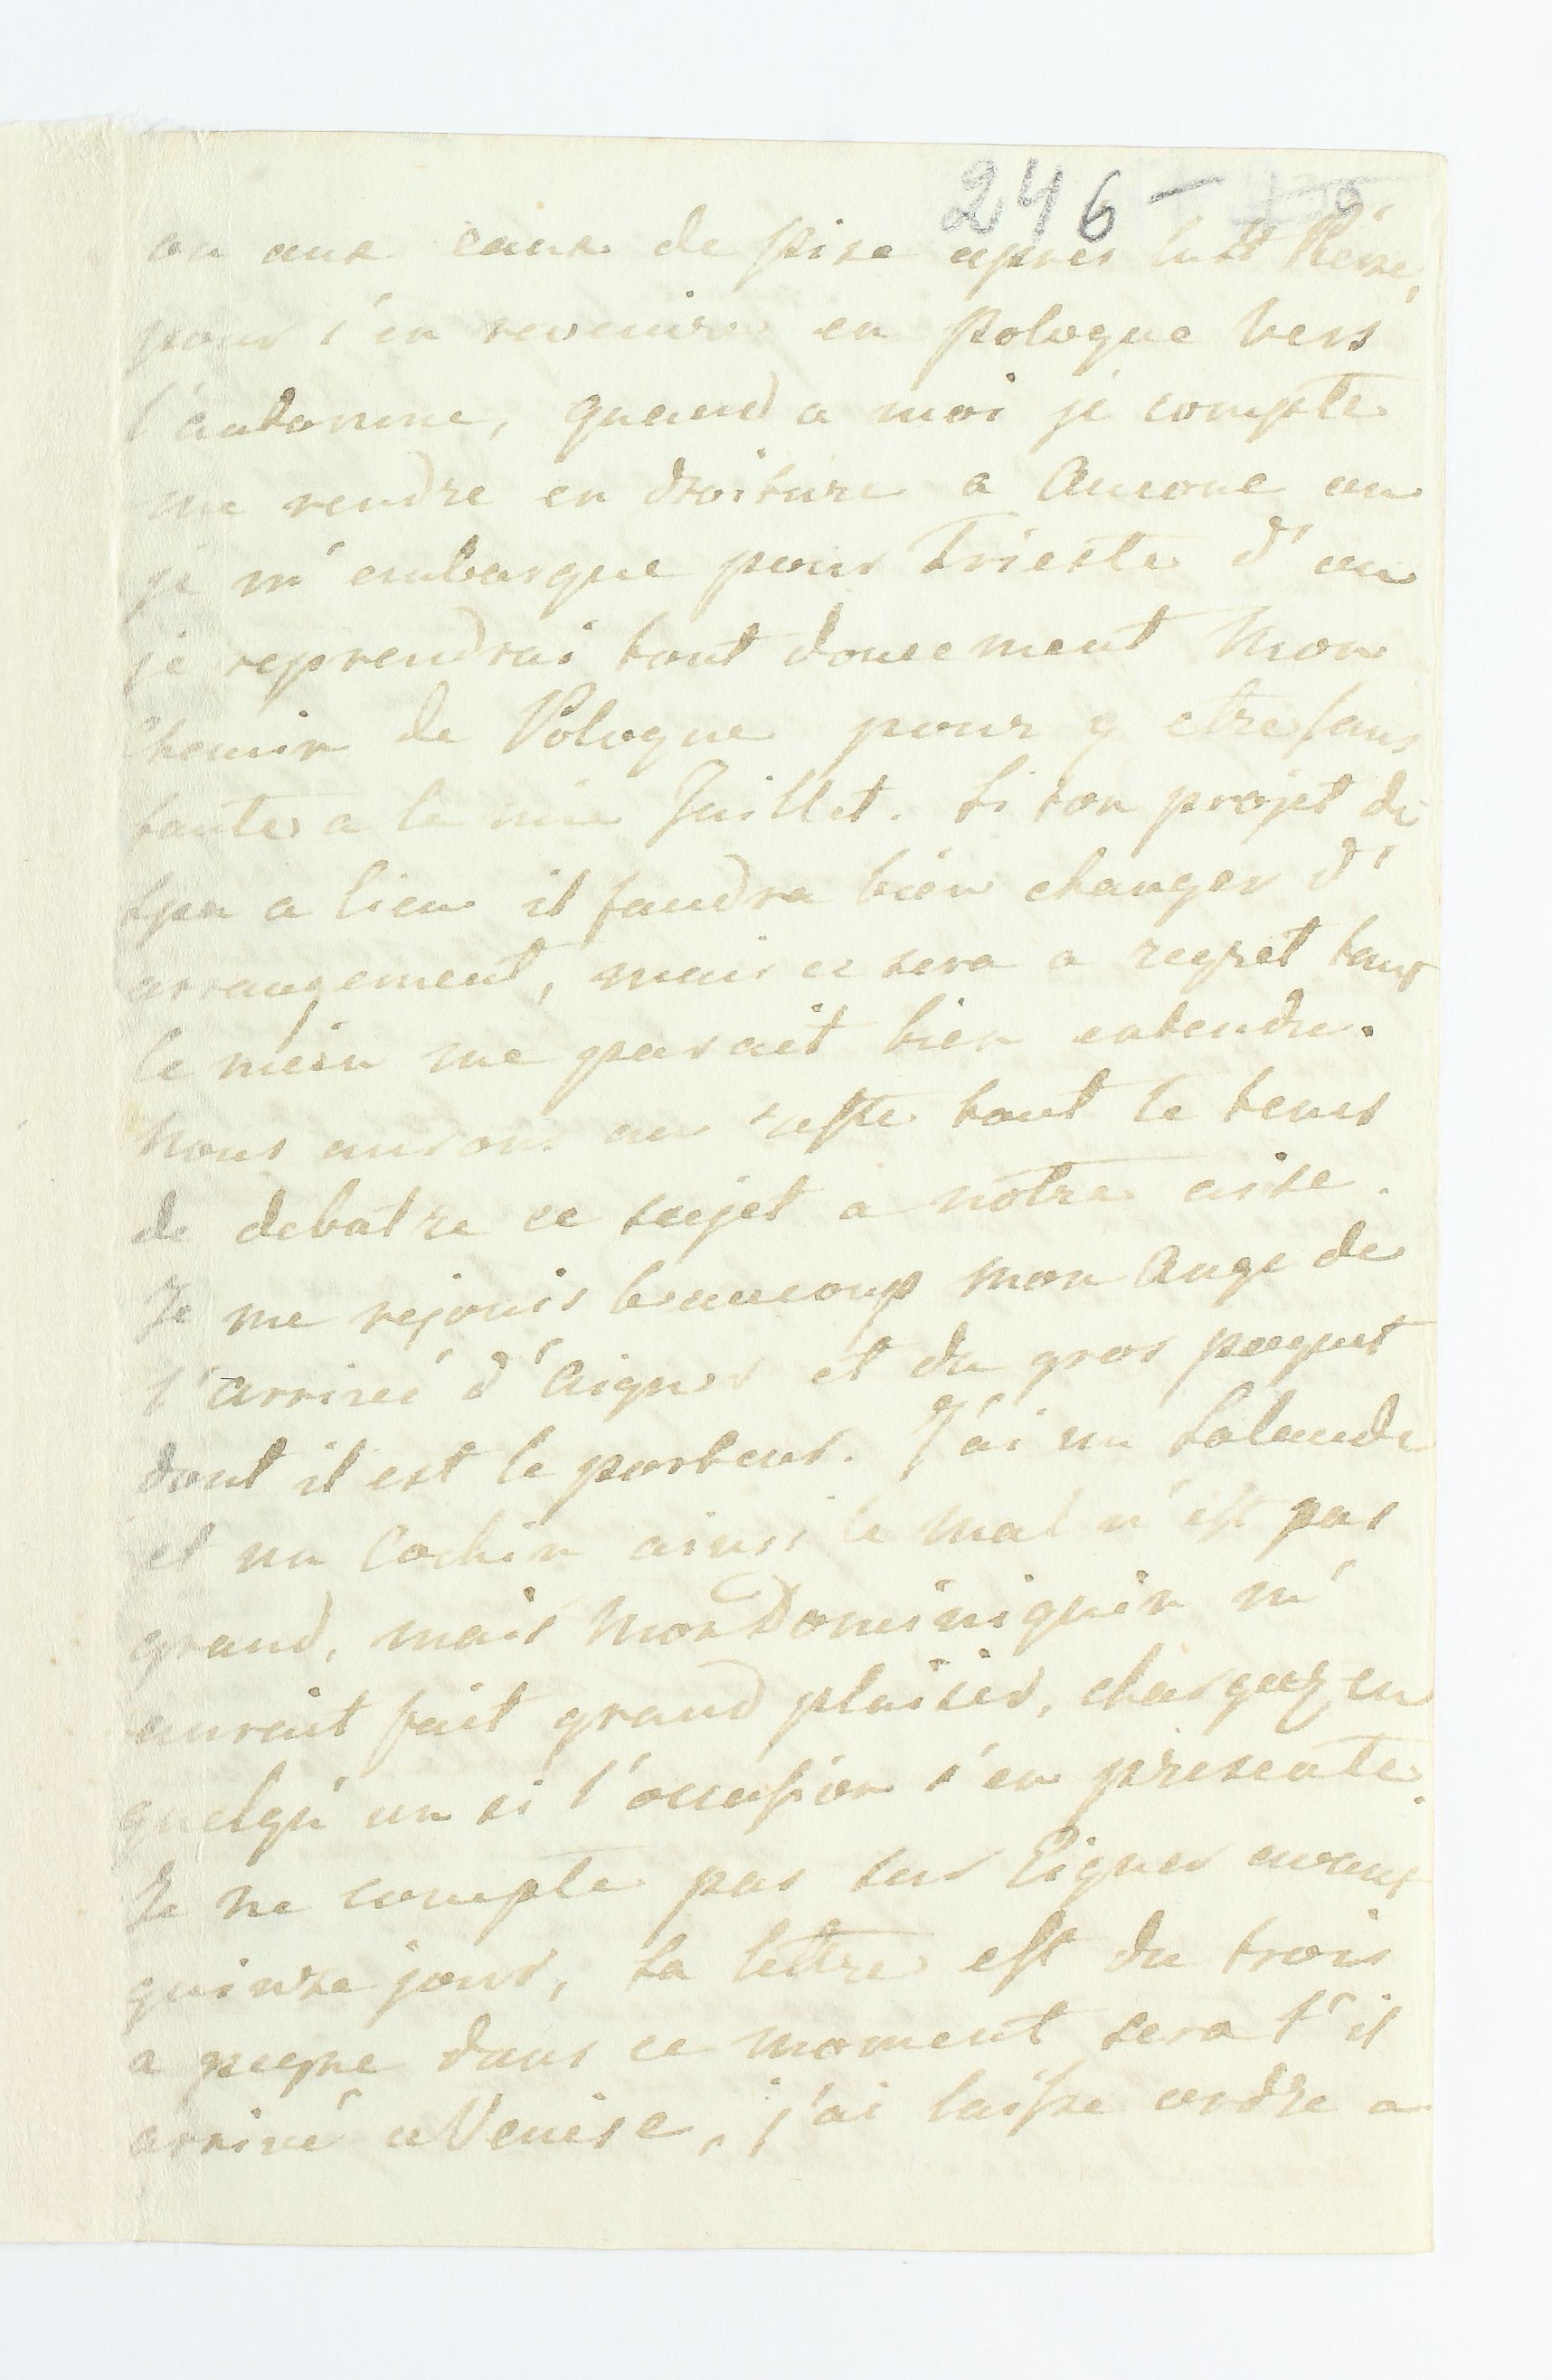 246 -
ou aux eaux de Pise apres la St Pierre,
pour s'en revenir en Pologne vers
l'automne, quand a moi je compte
me rendre en droiture a Ancone ou
je m'embarque pour Trieste d'ou
je reprendrai tout doucement mon
chemin de Pologne pour y etre sans
faute a la mie Juillet. Si ton projet de
Spa a lieu il faudra bien changer d'
arrangement, mais ce sera a regret tant
le mien me parait bien entendu.
Nous aurons au reste tout le tems
de debatre ce sujet a notre aise.
Je me rejouis beaucoup mon Ange de
l'arriveé d'Aigner et du gros paquet
dont il est le porteur. J'ai un Lalande
et un Cochin ainsi le mal n'est pas
grand, mais mon Dominiquin m'
auroit fait grand plaisir, chargez en
quelqu'un si l'occasion s'en presente.
Je ne compte pas sur Eigner avant
quinze jour, sa lettre est du trois
a peyne dans ce moment sera t'il
arrivé a Venise, j'ai laisse ordre a